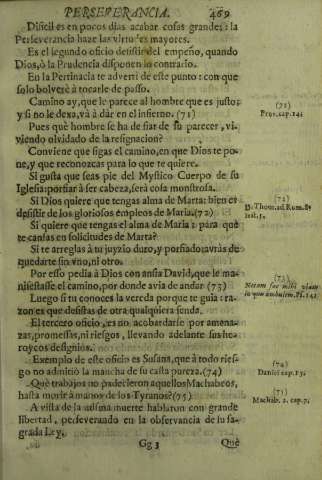 PERSEVERANCIA. 469
Dificil es en pocos dias acabar cosas grandes: la
Perseverancia haze las virtudes mayores.
Es el segundo oficio desistir del empeño, quando
Dios, ò la Prudencia disponen lo contrario.
En la Pertinacia te adverti de este punto: con que
solo bolverè à tocarle de passo.
Camino ay, que le parece al hombre que es justo;
y si no le dexa, và à dar en el infierno. (71)
(71)
Prov. cap. 14.
Pues què hombre se ha de fiar de su parecer, vi-
viendo olvidado de la resignacion?
Conviene que sigas el camino, en que Dios te po-
ne, y que reconozcas para lo que te quiere.
Si gusta que seas pie del Mystico Cuerpo de su
Iglesia: porfiar à ser cabeza, serà cosa monstrosa.
Si Dios quiere que tengas alma de Marta: bien es
desistir de los gloriosos empleos de Maria. (72)
(72)
D. Thom. ad Rom. 8.
Si quiere que tengas el alma de Maria: para què
te cansas en solicitudes de Marta?
Si te arreglas à tu juyzio duro, y porfiado, avràs de
quedarte sin vno, ni otro.
Por esso pedia à Dios con ansia David, que le ma-
nifestasse el camino, por donde avia de andar (73)
(73)
Notam fac mihi viam
in qua ambulem. Ps. 142
Luego si tu conoces la vereda porque te guia: ra-
zon es que desistas de otra qualquiera senda.
El tercero oficio, es no acobardarse por amena-
zas, promessas, ni riesgos, llevando adelante sus he-
roycos designios.
Exemplo de este oficio es Susana, que à todo ries-
go no admitiò la mancha de su casta pureza. (74)
(74)
Daniel cap. 13.
Què trabajos no padecieron aquellos Machabeos,
hasta morir à manos de los Tyranos? (75)
(75)
Machab. 2. cap. 7.
A vista de la vltima muerte hablaron con grande
libertad, perseverando en la observancia de su sa-
grada Ley.
Gg 3 Què